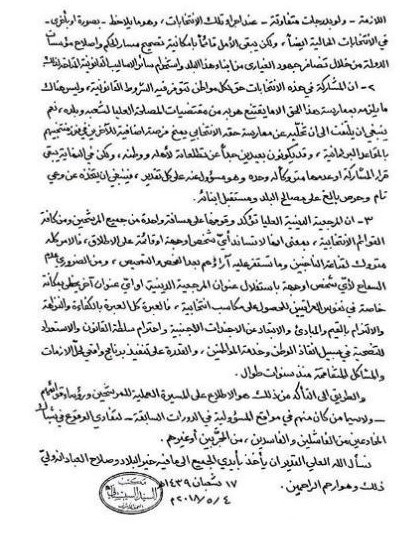 اللازمة - ولو بدرجات متفاوتة - عند اجراء تلك الانتخابات، وهو ما يلاحظ - بصورة أو بأخرى -
في الانتخابات الحالية ايضاً، ولكن يبقى الأمل قائماً بإمكانية تصحيح مسار الحكم واصلاح مؤسسات
الدولة من خلال تضافر جهود الغيارى من ابناء هذا البلد واستخدام سائر الاساليب القانونية المتاحة لذلك
٢- ان المشاركة في هذه الانتخابات حق لكل مواطن تتوفر فيه الشروط القانونية، وليس هناك
ما يلزمه بممارسة هذا الحق الا ما يقتنع هو به من مقتضيات المصلحة العليا لشعبه وبلده، نعم
ينبغي ان يلتفت الى ان تخليه عن ممارسة حقه الانتخابي يمنح فرصة اضافية للآخرين في فوز منتخبيهم
بالمقاعد البرلمانية، وقد يكونون بعيدين جداً عن تطلعاته لأهله ووطنه، ولكن في النهاية يبقى
قرار المشاركة او عدمها متروكاً له وحده وهو مسؤول عنه على كل تقدير، فينبغي ان يتخذه عن وعي
تام وحرص بالغ على مصالح البلد ومستقبل ابنائه.
٣- ان المرجعية الدينية العليا تؤكد وقوفها على مسافة واحدة من جميع المرشحين ومن كافة
القوائم الانتخابية، بمعنى انها لا تساند أي شخص او جهة او قائمة على الاطلاق، فالأمر كله
متروك لقناعة الناخبين وما تستقر عليه آراؤهم بعد الفحص والتمحيص، ومن الضروري عدم
السماح لأي شخص او جهة باستغلال عنوان المرجعية الدينية او أي عنوان آخر يحظى بمكانة
خاصة في نفوس العراقيين للحصول على مكاسب انتخابية، فالعبرة كل العبرة بالكفاءة والنزاهة
والالتزام بالقيم والمبادئ والابتعاد عن الاجندات الاجنبية واحترام سلطة القانون والاستعداد
للتضحية في سبيل انقاذ الوطن وخدمة المواطنين، والقدرة على تنفيذ برنامج واقعي لحل الازمات
والمشاكل المتفاقمة منذ سنوات طوال.
والطريق الى التأكد من ذلك هو الاطلاع على المسيرة العملية للمرشحين ورؤساء قوائمهم
- ولا سيما من كان منهم في مواقع المسؤولية في الدورات السابقة - لتفادي الوقوع في شباك
المخادعين من الفاشلين والفاسدين، من المجربين أو غيرهم.
نسأل الله العلي القدير ان يأخذ بأيدي الجميع الى ما فيه خير البلاد وصلاح العباد انه ولي
ذلك وهو ارحم الراحمين.
١٧ شعبان ١٤٣٩هـ
٢٠١٨/٥/٤م
مكتب
السيد السيستاني